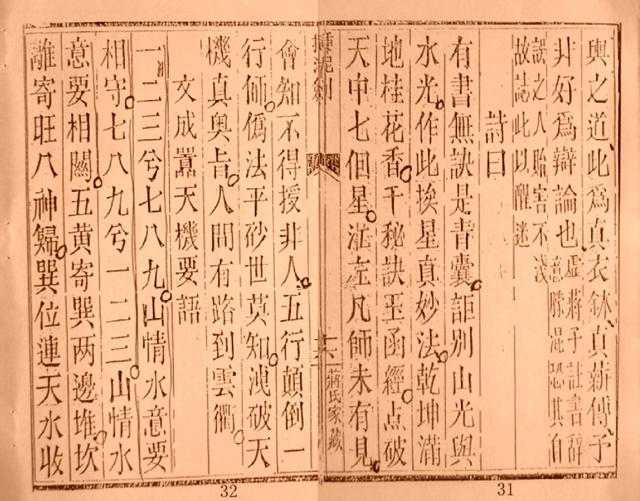 輿之道此爲真衣鉢真薪傳予
非好爲辯論也虛蔣子註書辭
意混恐其自
誤之人貽害不淺
故誌此以醒迷
詩曰
有書無訣是青囊詎別山光與
水光作此挨星真妙法乾坤滿
地桂花香千秘訣玉函經点破
天中七個星茫凡師未有見
31
蔣氏家藏
會知不得授非人五行顛倒一
行師僞法平砂世莫知洩破天
機真奥旨人間有路到雲衢
文成囂天機要語
一二三兮七八九山情水意要
相守七八九兮一二三山情水
意要相關五黄寄巽两邊堆坎
離寄旺八神歸巽位連天水收
32